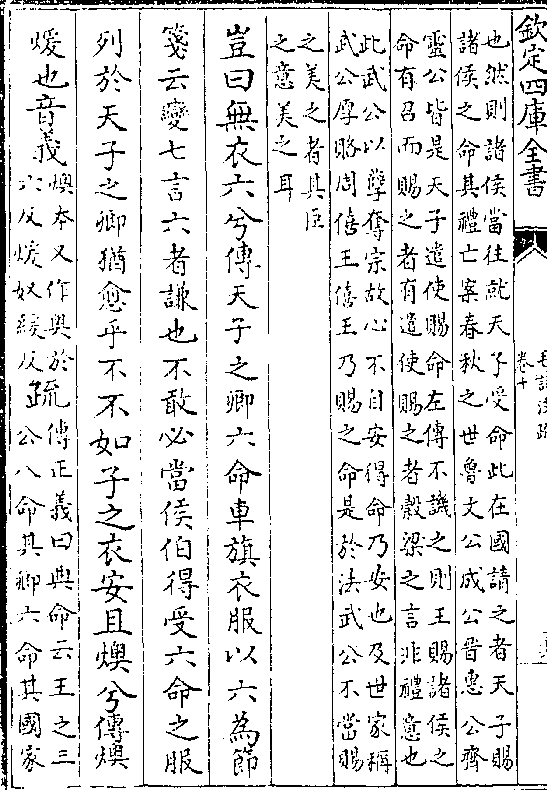 欽定四庫全書
毛詩注疏
卷十
也然則諸侯當往就天子受命此在國請之者天子賜
諸侯之命其禮亡案春秋之世魯文公成公晉惠公齊
靈公皆是天子遣使賜命左傳不譏之則王賜諸侯之
命有召而賜之者有遣使賜之者穀梁之言非禮意也
此武公以孽奪宗故心不自安得命乃安也及世家稱
武公厚賂周僖王僖王乃賜之命是於法武公不當賜
之美之者其臣
之意美之耳
豈曰無衣六兮傳天子之卿六命車旗衣服以六為節
箋云變七言六者謙也不敢必當侯伯得受六命之服
列於天子之卿猶愈乎不不如子之衣安且燠兮傳燠
煖也音義燠本又作奧於
六反煖奴緩反
疏傳正義曰典命云王之三
公八命其卿六命其國家